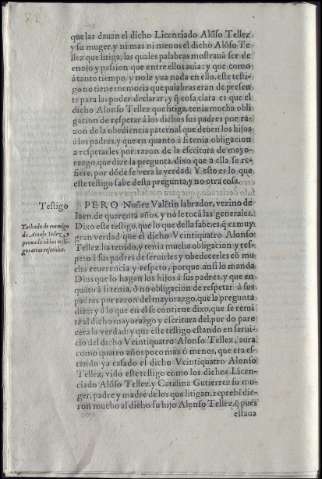 que las dauan el dicho Licenciado Alõso Tellez
y su muger, y ni mas ni menos el dicho Alõso Te-
llez que litiga, las quales palabras mostrauã ser de
enojo y passion que entre ellos auia: y que como à
tanto tiempo, y no le yua nada en ello, este testi-
go no tiene memoria que palabras eran de presen-
te para los poder declarar, y q̃ cosa clara es que el
dicho Alonso Tellez que litiga, tenia mucha obli-
gacion de respetar à los dichos sus padres por ra-
zon de la obediencia paternal que deuen los hijos
a los padres, y que en quanto à si tenia obligacion
a respetarles por razon de la escritura de mayo-
razgo, que dize la pregunta, dixo que a ella se re-
fiere, por dõde se vera la verdad. Y esto es lo que
este testigo sabe desta pregunta, y no otra cosa.
Testigo
PERO Nuñez Valẽtin labrador, vezino de
Iaen, de quarenta años, y no le tocã las generales.
Dixo este testigo, que lo que della sabe es, q̃ es muy
gran verdad que el dicho Veintiquatro Alonso
Tellez ha tenido, y tenia mucha obligacion, y res-
peto à sus padres de seruirles y obedecerles cõ mu-
cha reuerencia y respeto, porque ansi lo manda
Dios que lo hagan los hijos à sus padres, y que en
quanto à si tenia, ò no obligacion de respetar à sus
padres por razon del mayorazgo, que la pregunta
dize, y lo que en el se contiene dixo, que se remi-
te al dicho mayorazgo y escritura del, por do pare-
cera la verdad: y que este testigo estando en serui-
cio del dicho Veintiquatro Alonso Tellez, aura
como quatro años poco mas ò menos, que era es-
tando ya casado el dicho Veintiquatro Alonso
Tellez, vido este testigo como los dichos Licen-
ciado Alõso Tellez, y Catalina Gutierrez su mu-
ger, padre y madre de los que litigan, reprehẽdie-
ron mucho al dicho su hijo Alonso Tellez, q̃ pues
estaua